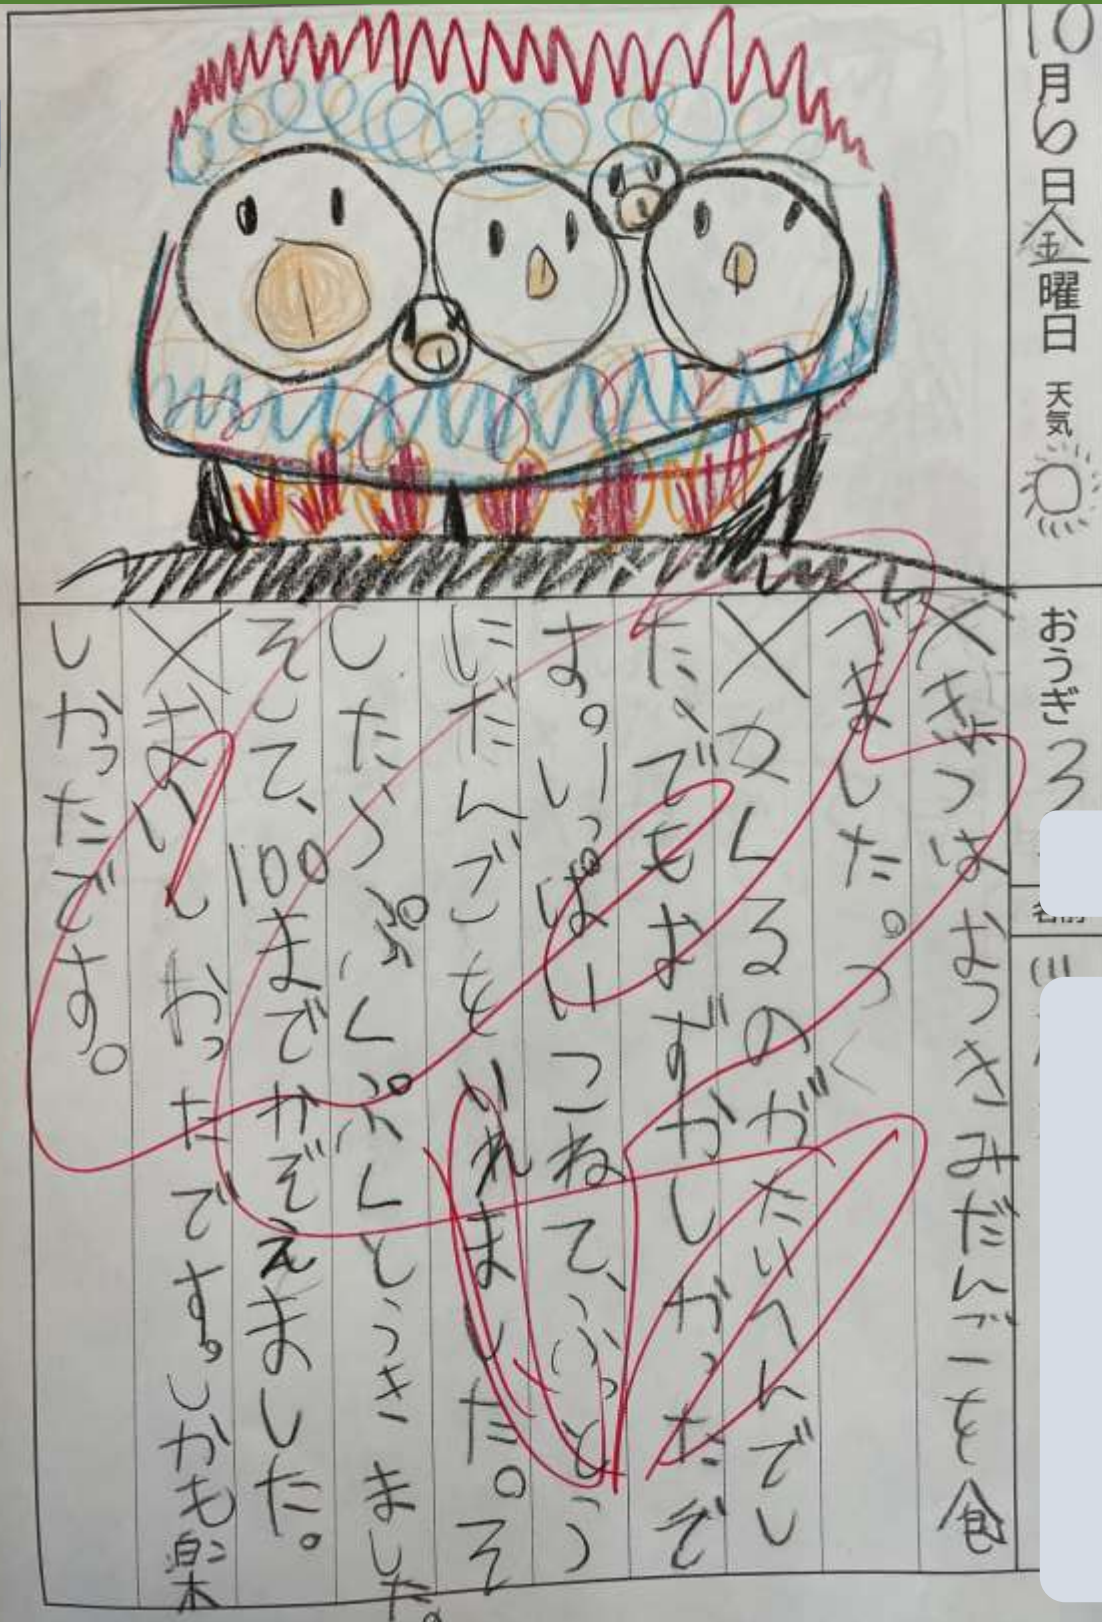 10月6日金曜日 天気
おうぎ
名前
×きょうはおつきみだんごを食
べました。つく
×つくるのがたいへんでし
た、でもむずかしかったで
す。いっぱいこねて、ふっとう
にだんごをいれました。そ
したらぷくぷくとうきました。
そして、100までかぞえました。
×おいしかったです。しかも楽
しかったです。